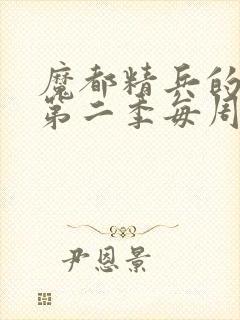 魔都精兵的
第二季每周
尹恩景